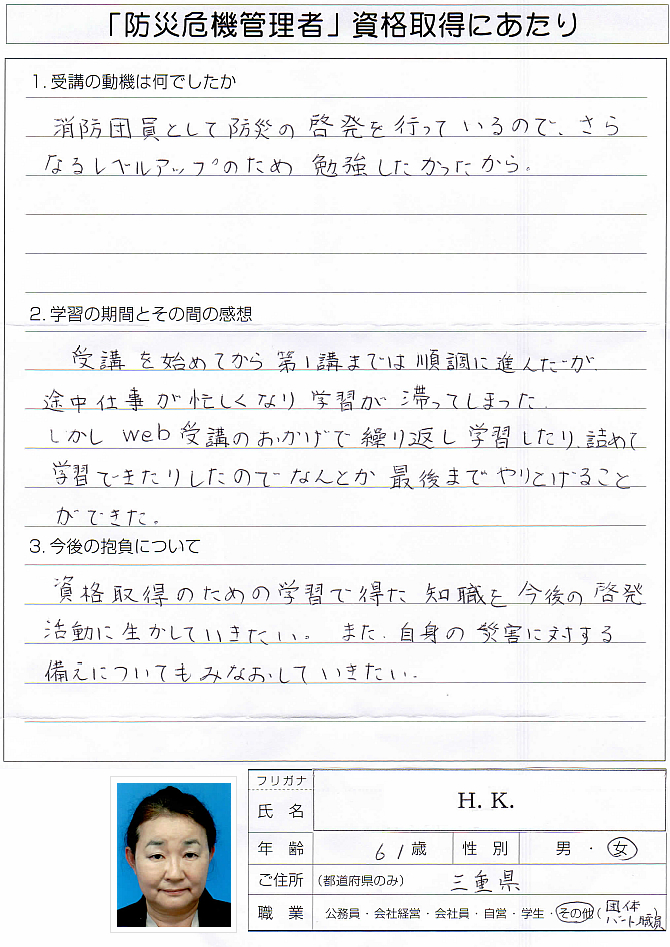 「防災危機管理者」資格取得にあたり
1. 受講の動機は何でしたか
消防団員として防災の啓発を行っているので、さら
なるレベルアップのため勉強したかったから。
2. 学習の期間とその間の感想
受講を始めてから第1講までは順調に進んだが
途中仕事が忙しくなり学習が滞ってしまった.
しかしweb受講のおかげで繰り返し学習したり、詰めて
学習できたりしたのでなんとか最後までやりとげること
ができた。
3. 今後の抱負について
資格取得のための学習で得た知職を今後の啓発
活動に生かしていきたい。また、自身の災害に対する
備えについてもみなおしていきたい.
フリガナ
氏 名 H. K.
年 齢 61歳 性 別 男 ・ 女
ご住所 (都道府県のみ) 三重県
職 業 公務員・会社経営・会社員・自営・学生・その他(団体パート職員)